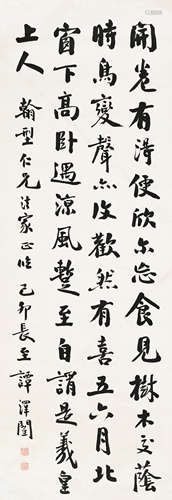 開卷有得便欣尔忘食見樹木交蔭
時鳥變聲亦復歡然有喜五六月北
窗下高卧遇涼風暫至自謂是羲皇
上人
翰型仁兄法家正 己卯長至 譚澤闓